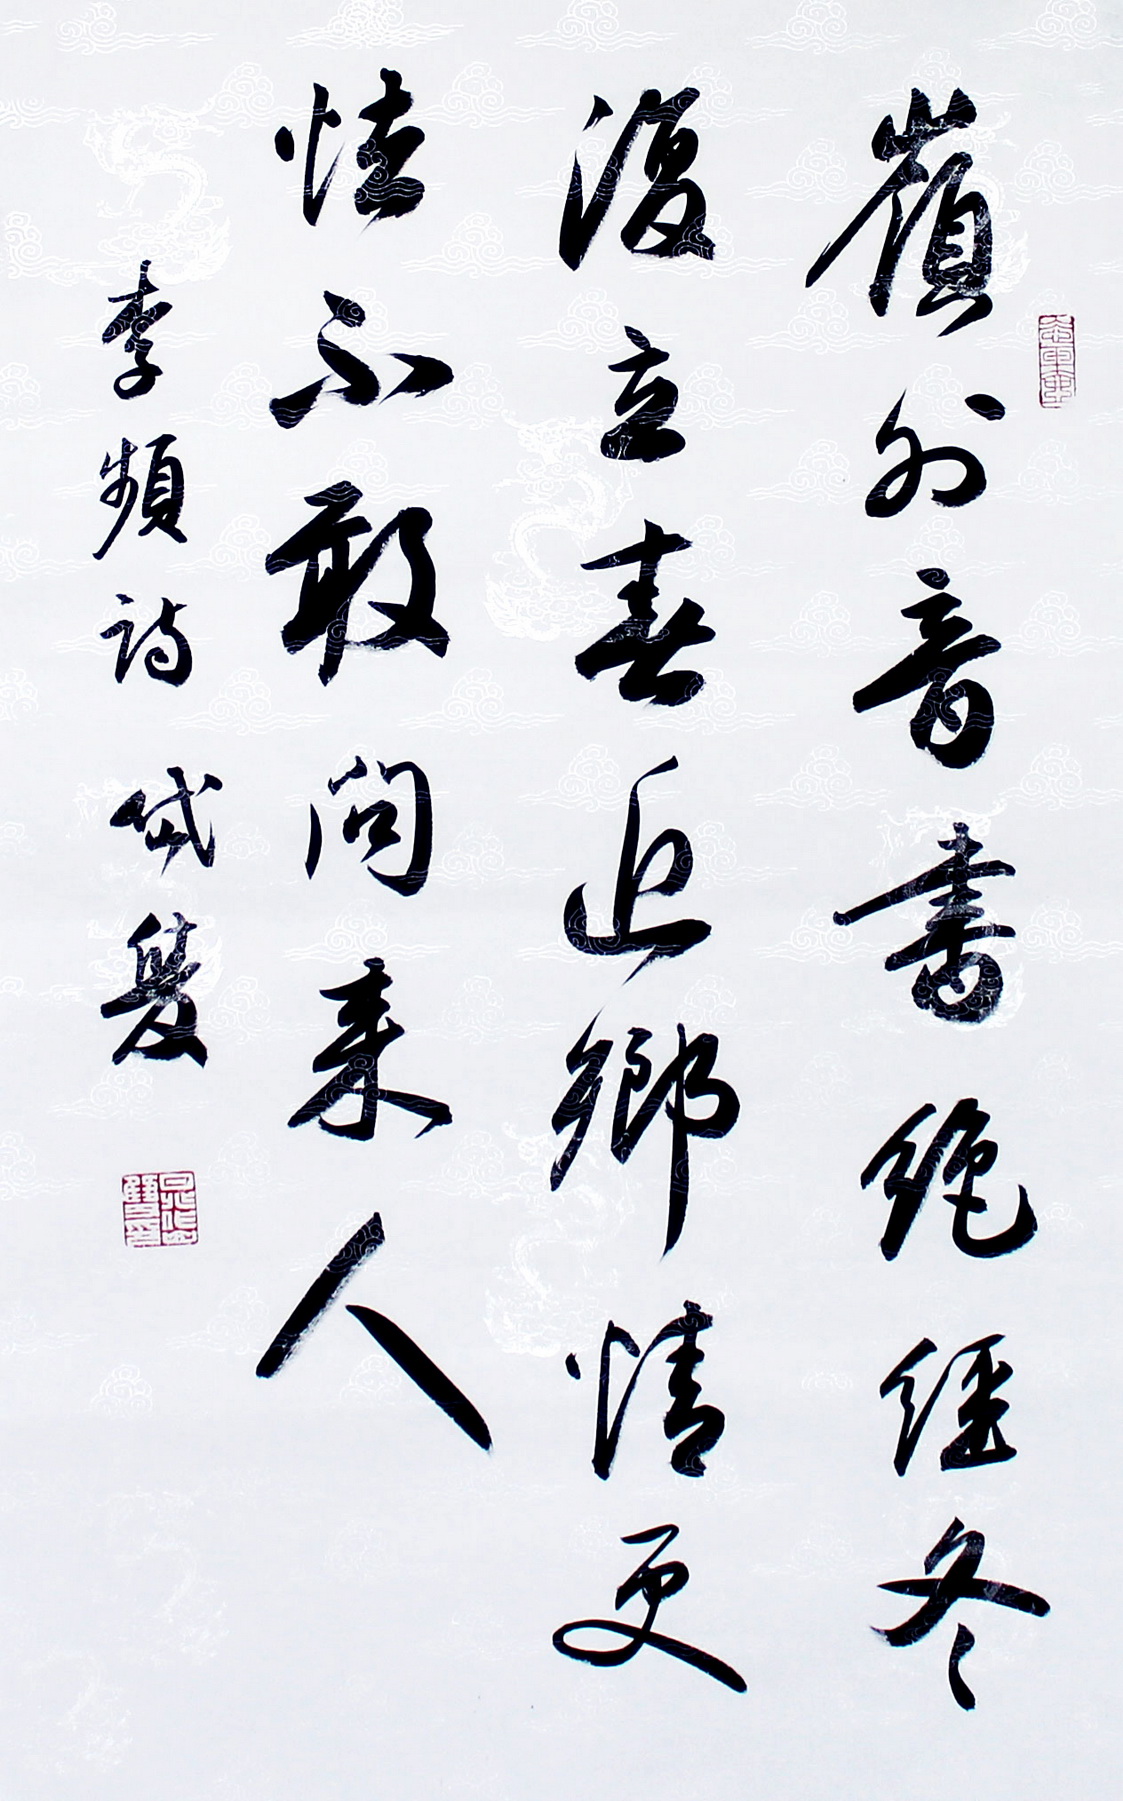 嶺外音書絕經冬
復立春近鄉情更
怯不敢問來人
李頻詩